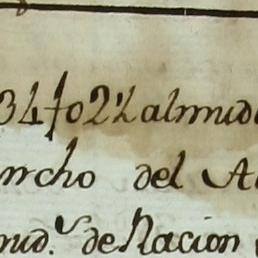 34fo24 almud
ncho del A
mud.s de Nacion